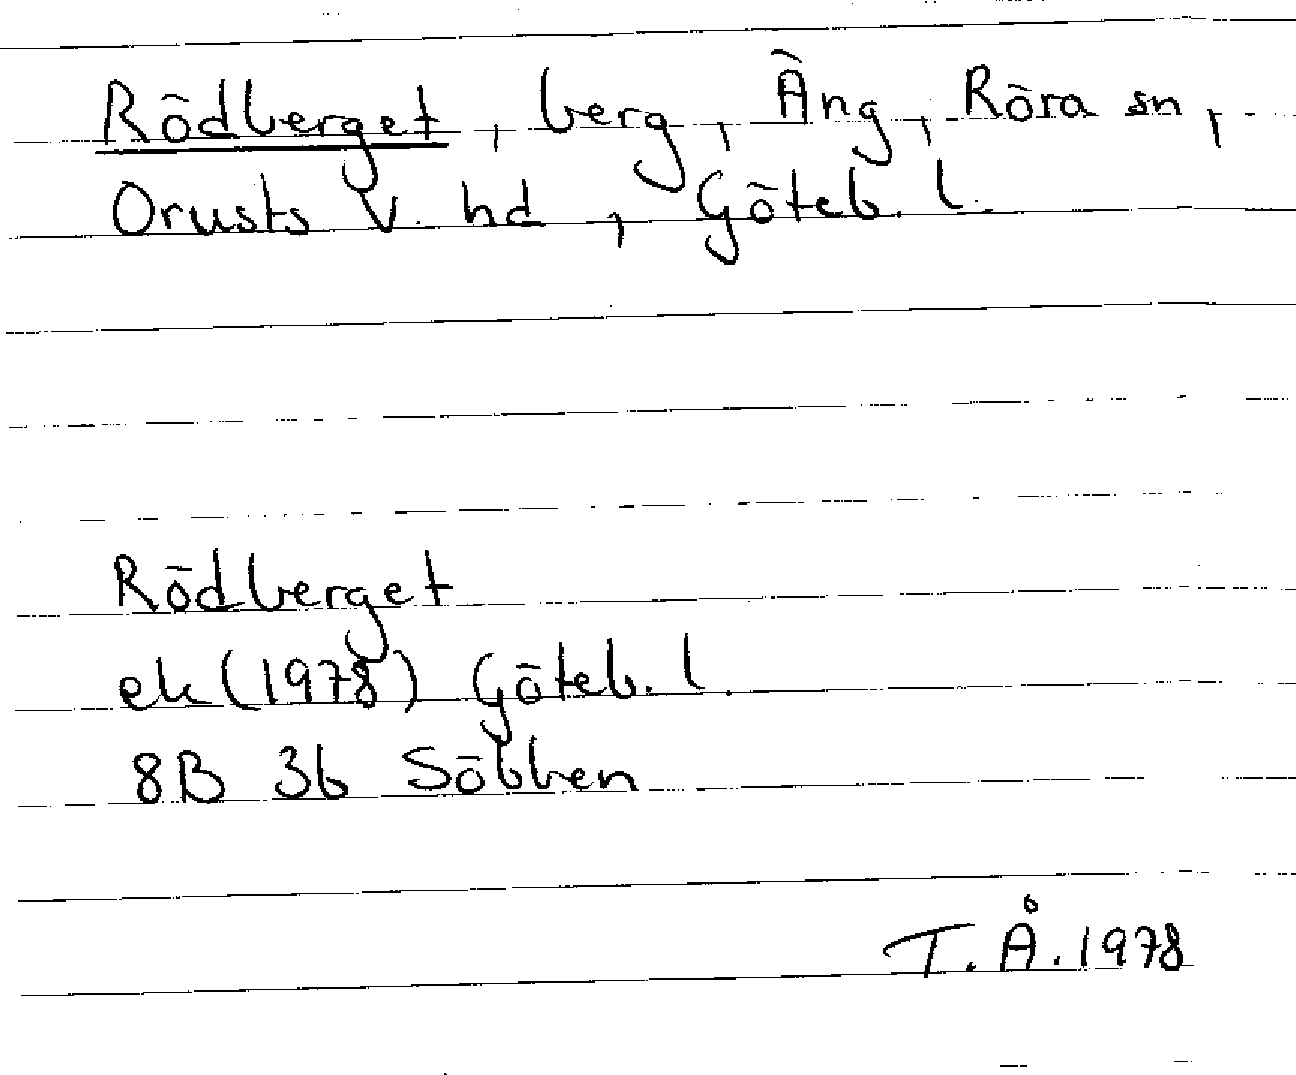 Rödberget, berg, Äng, Röra sn,
Orusts V. hd, Göteb. l.
Rödberget
ek (1978) Göteb. l.
8B 3b Söbben
T. Å. 1978